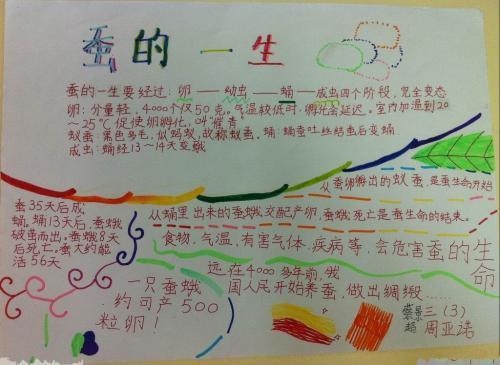 蚕的一生
蚕的一生要经过：卵——幼虫——蛹——成虫四个阶段，完全变态
卵：分量轻，4000个仅50克，气温较低时，孵化会延迟。室内加温到20
～25℃促使卵孵化，叫"催青"
蚁蚕：黑色多毛，似蚂蚁，故称蚁蚕。蛹：蛹蚕吐丝结茧后变蛹
成虫：蛹经13～14天变蛾
从蚕卵孵出的蚁蚕，是蚕生命开始
蚕35天后成
蛹，蛹13天后，蚕蛾
破茧而出。蚕蛾8天
后死亡。蚕大约能
活56天
从蛹里出来的蚕蛾，交配产卵，蚕蛾死亡是蚕生命的结束。
食物、气温、有害气体、疾病等，会危害蚕的生
命
远在4000多年前，我
国人民开始养蚕，做出绸缎……
一只蚕蛾
约可产500
粒卵！
三（3）
周亚